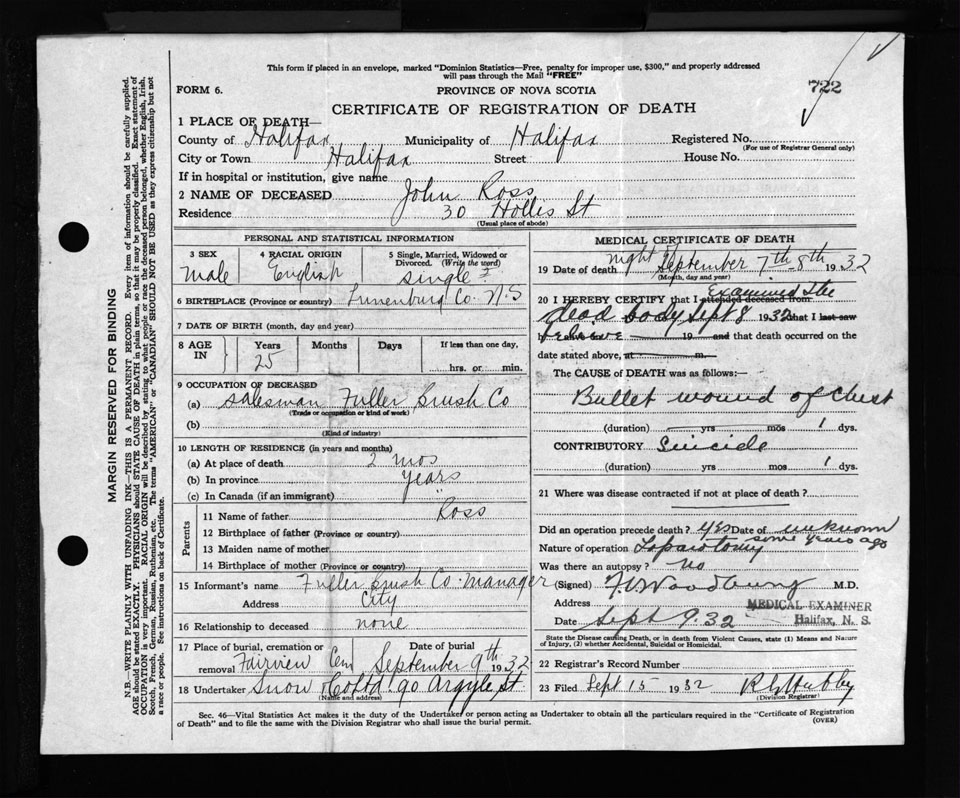 This form if placed in an envelope, marked "Dominion Statistics—Free, penalty for improper use, $300," and properly addressed
will pass through the Mail "FREE"
722
FORM 6.
PROVINCE OF NOVA SCOTIA
CERTIFICATE OF REGISTRATION OF DEATH
1 PLACE OF DEATH—
County of Halifax Municipality of Halifax Registered No.
(For use of Registrar General only)
City or Town Halifax Street House No.
If in hospital or institution, give name
2 NAME OF DECEASED John Ross
Residence 30 Hollis St
(Usual place of abode)
PERSONAL AND STATISTICAL INFORMATION
3 SEX 4 RACIAL ORIGIN 5 Single, Married, Widowed or
Divorced. (Write the word)
Male English single
6 BIRTHPLACE (Province or country) Lunenburg Co. N.S
7 DATE OF BIRTH (month, day and year)
8 AGE IN Years Months Days If less than one day,
25 hrs. or min.
9 OCCUPATION OF DECEASED
(a) Salesman Fuller Brush Co
(Trade or occupation or kind of work)
(b)
(Kind of industry)
10 LENGTH OF RESIDENCE (in years and months)
(a) At place of death 2 mos
(b) In province years
(c) In Canada (if an immigrant) "
Parents
11 Name of father Ross
12 Birthplace of father (Province or country)
13 Maiden name of mother
14 Birthplace of mother (Province or country)
15 Informant's name Fuller Brush Co. Manager
Address City
16 Relationship to deceased none
17 Place of burial, cremation or Date of burial
removal Fairview Cem September 9th 1932
18 Undertaker Snow & Co Ltd 90 Argyle St.
(Name and address)
MEDICAL CERTIFICATE OF DEATH
19 Date of death night September 7th-8th 1932
(Month, day and year)
20 I HEREBY CERTIFY that I attended deceased from Examined the
dead body Sept 8 1932 that I last saw
h alive 19 and that death occurred on the
date stated above, at m.
The CAUSE of DEATH was as follows:
Bullet wound of Chest
(duration) yrs mos 1 dys.
CONTRIBUTORY Suicide
(duration) yrs mos 1 dys.
21 Where was disease contracted if not at place of death?
Did an operation precede death? Yes Date of unknown
some years ago
Nature of operation Laparotomy
Was there an autopsy? No
(Signed) M.D.
Address MEDICAL EXAMINER
Date Sept 9.32 Halifax, N. S.
State the Disease causing Death, or in death from Violent Causes, state (1) Means and Nature
of Injury, (2) whether Accidental, Suicidal or Homicidal.
22 Registrar's Record Number
23 Filed Sept 15 1932
(Division Registrar)
Sec. 46—Vital Statistics Act makes it the duty of the Undertaker or person acting as Undertaker to obtain all the particulars required in the "Certificate of Registration
of Death" and to file the same with the Division Registrar who shall issue the burial permit.
(OVER)
MARGIN RESERVED FOR BINDING
N.B.—WRITE PLAINLY WITH UNFADING INK—THIS IS A PERMANENT RECORD. Every item of information should be carefully supplied.
AGE should be stated EXACTLY. PHYSICIANS should STATE CAUSE OF DEATH in plain terms, so that it may be properly classified. Exact statement of
OCCUPATION is very important. RACIAL ORIGIN will be described by stating to what people or race the deceased person belonged, whether English, Irish,
Scotch, French, German, Russian, Ruthenian, etc. The terms "AMERICAN" or "CANADIAN" SHOULD NOT BE USED as they express citizenship but not
a race or people. See instructions on back of Certificate.